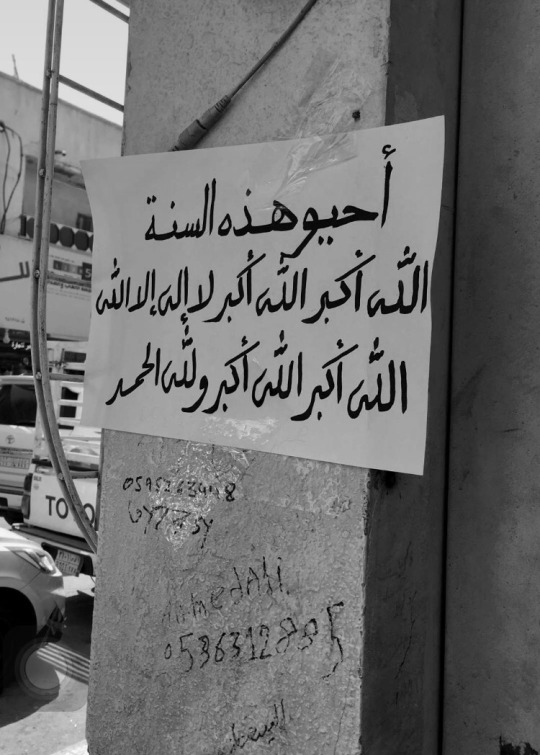 أحيو هذه السنة
الله أكبر الله أكبر لا إله إلا الله
الله أكبر الله أكبر ولله الحمد
Ahmed Ali
0536312885
TOYO